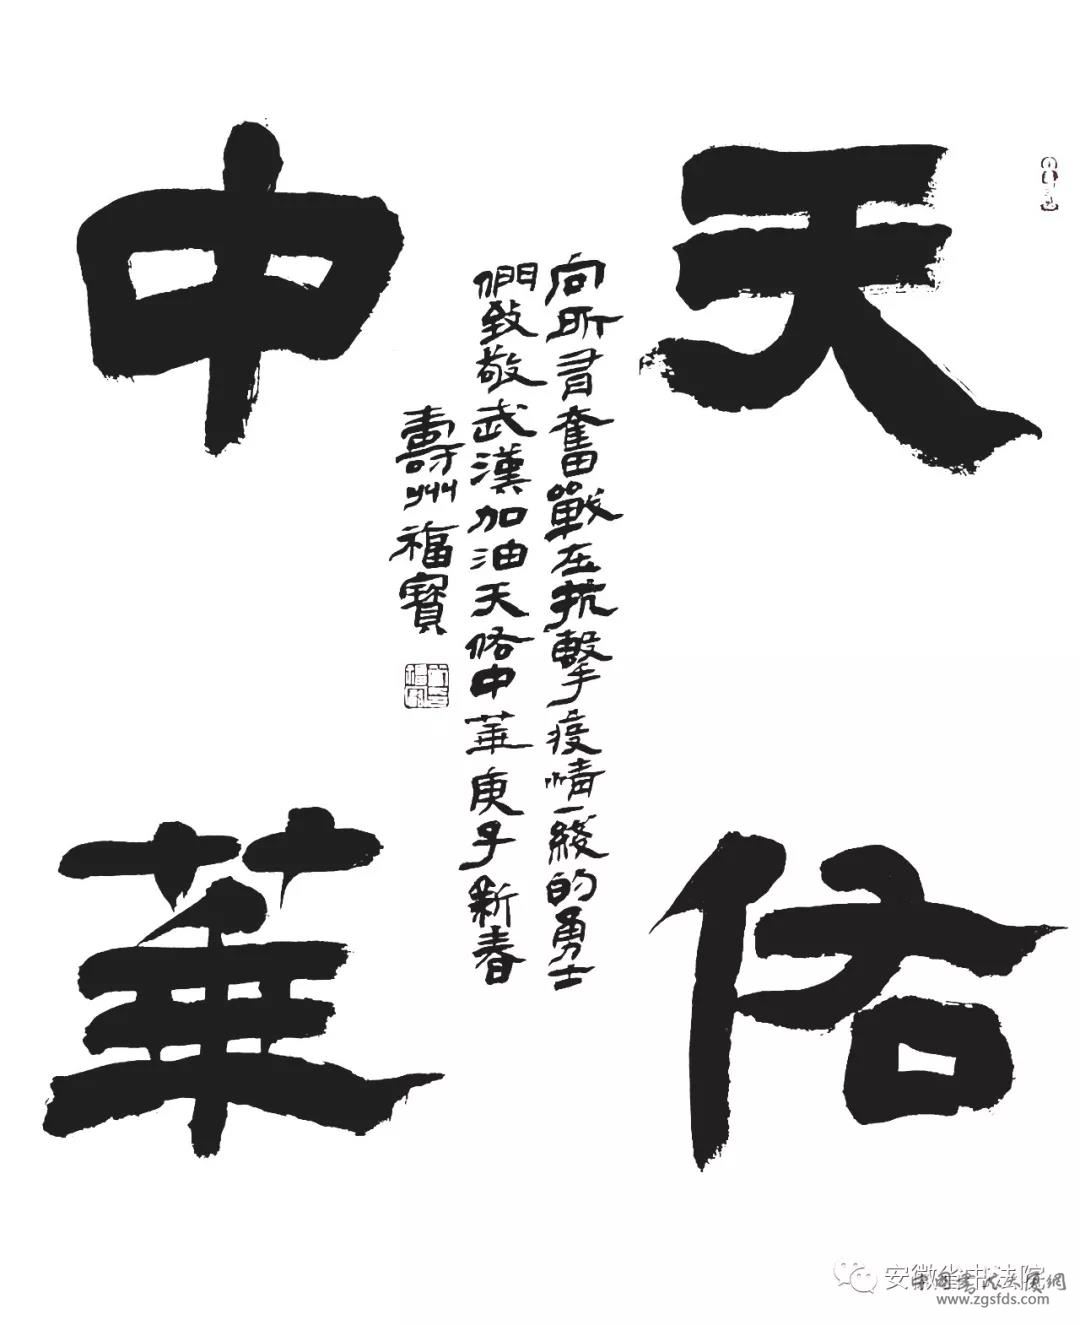 天佑
中華
向所有奮戰在抗擊疫情一綫的勇士
們致敬武漢加油天佑中華庚子新春
壽州福寶
安徽省书法院
中国書法大厦網
www.zgsfds.com